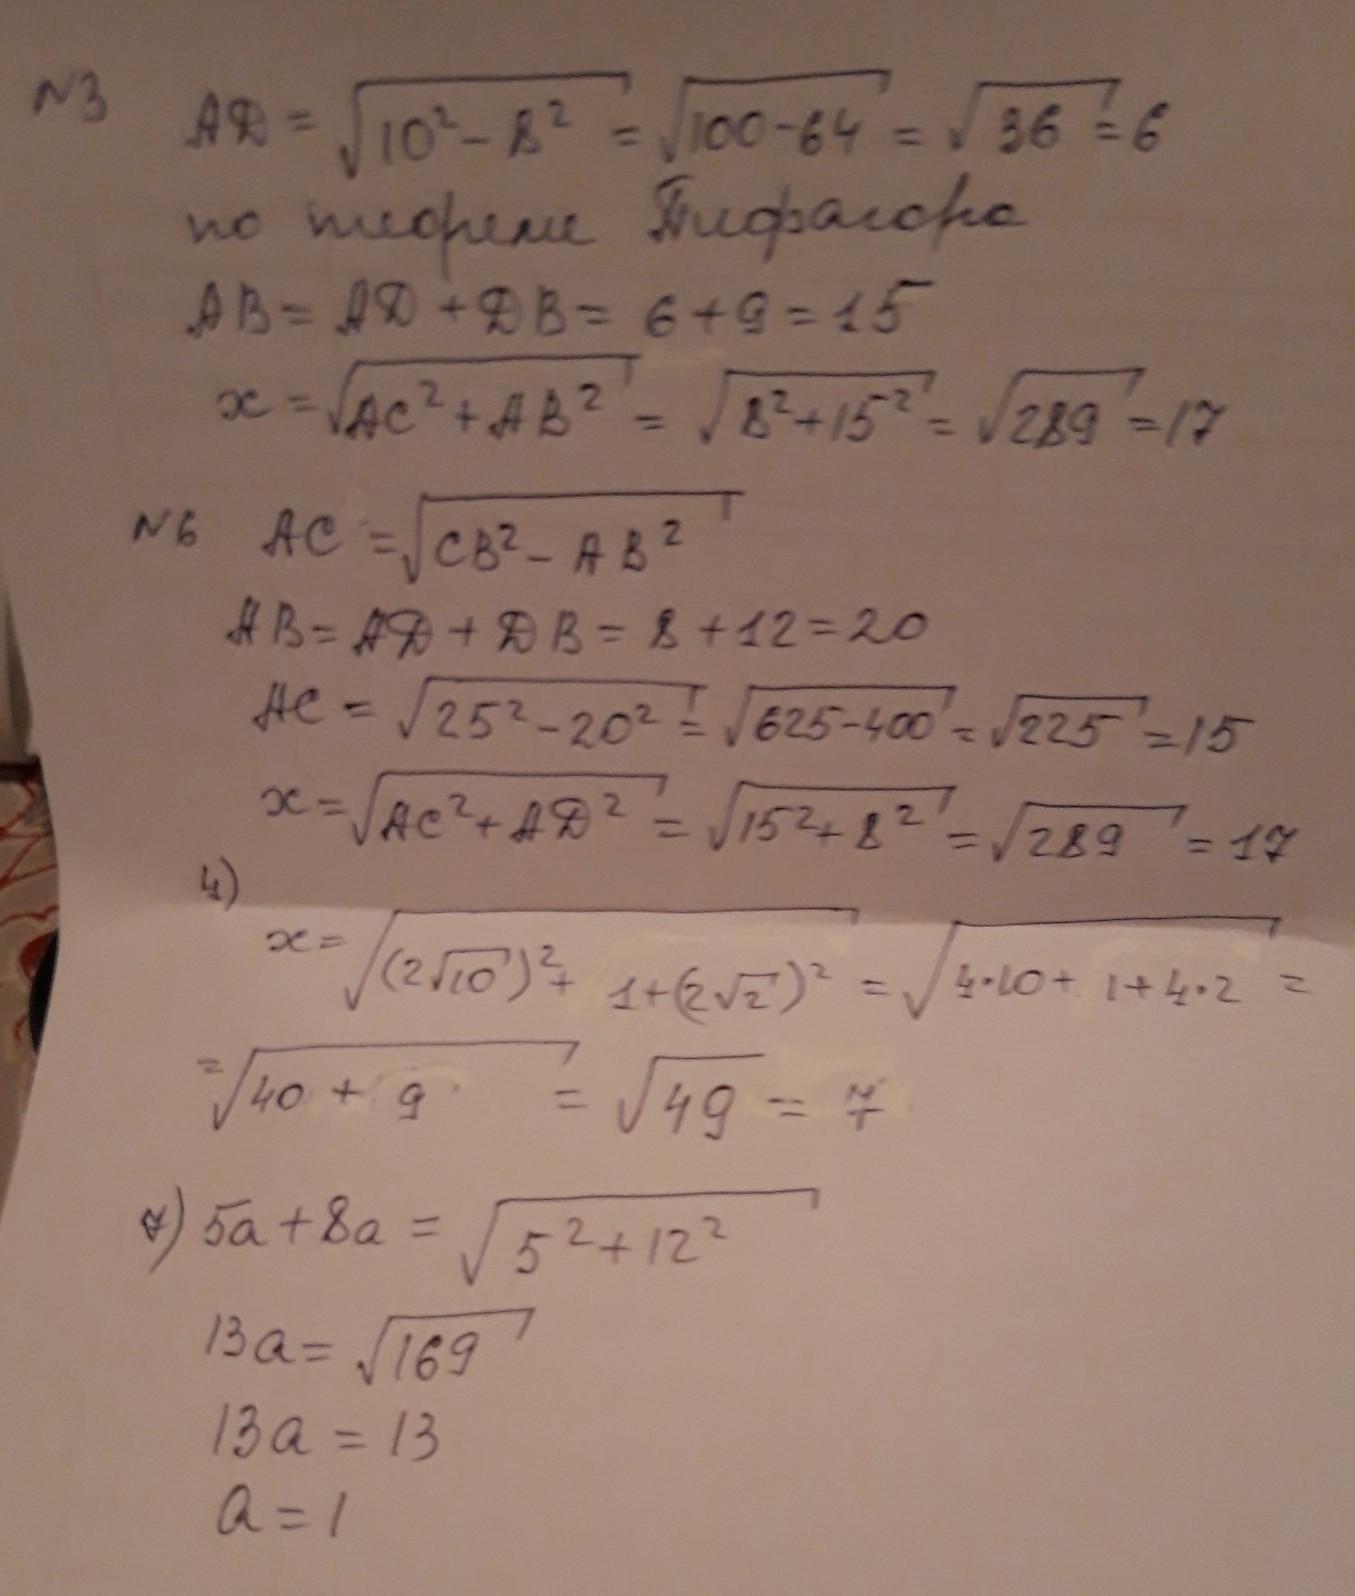 №3 AD = √(10² - 8²) = √(100-64) = √36 = 6
по теореме Пифагора
AB = AD + DB = 6 + 9 = 15
x = √(AC² + AB²) = √(8² + 15²) = √289 = 17
№6 AC = √(CB² - AB²)
AB = AD + DB = 8 + 12 = 20
AC = √(25² - 20²) = √(625-400) = √225 = 15
x = √(AC² + AD²) = √(15² + 8²) = √289 = 17
4)
x = √((2√10)² + 1 + (2√2)²) = √(4·10 + 1 + 4·2) =
= √(40 + 9) = √49 = 7
7) 5a + 8a = √(5² + 12²)
13a = √169
13a = 13
a = 1